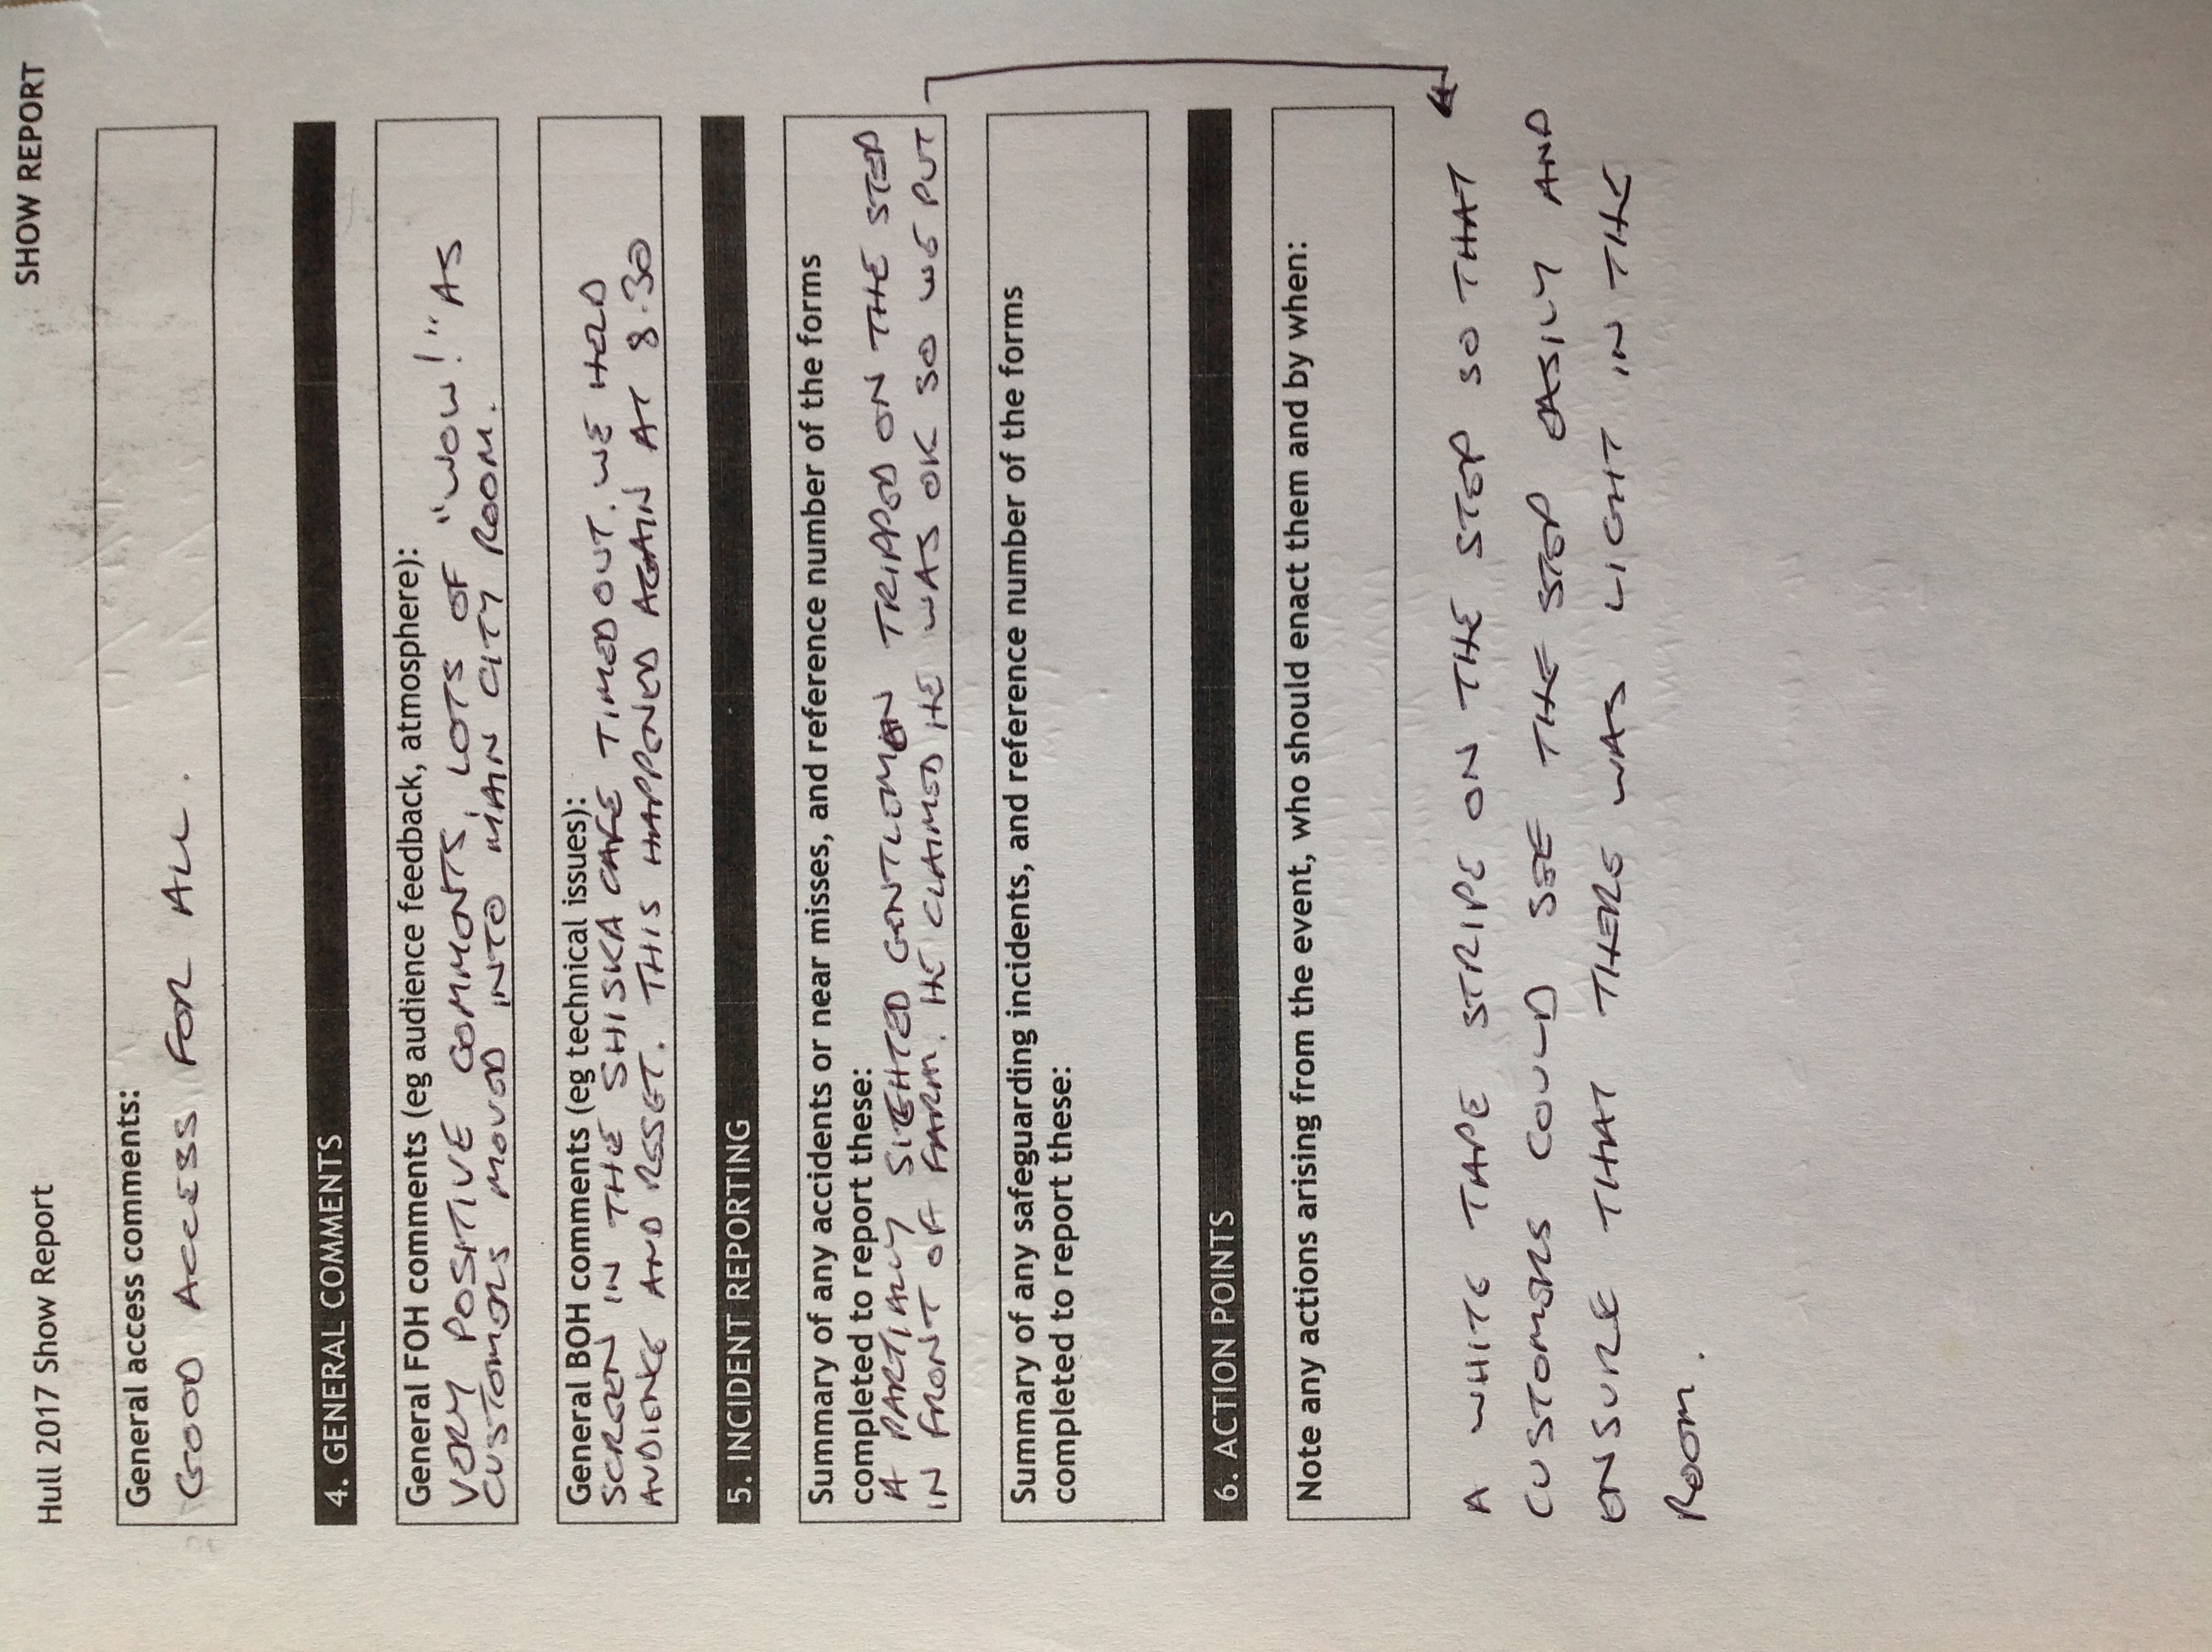 Hull 2017 Show Report SHOW REPORT
General access comments:
GOOD ACCESS FOR ALL.
4. GENERAL COMMENTS
General FOH comments (eg audience feedback, atmosphere):
VERY POSITIVE COMMENTS, LOTS OF "WOW!" AS
CUSTOMERS MOVED INTO MAIN CITY ROOM.
General BOH comments (eg technical issues):
SCREEN IN THE SHISKA CAFE TIMED OUT. WE HELD
AUDIENCE AND RESET. THIS HAPPENED AGAIN AT 8.30
5. INCIDENT REPORTING
Summary of any accidents or near misses, and reference number of the forms
completed to report these:
A PARTIALLY SIGHTED GENTLEMAN TRIPPED ON THE STEP
IN FRONT OF FARM. HE CLAIMED HE WAS OK SO WE PUT
Summary of any safeguarding incidents, and reference number of the forms
completed to report these:
6. ACTION POINTS
Note any actions arising from the event, who should enact them and by when:
A WHITE TAPE STRIPE ON THE STEP SO THAT
CUSTOMERS COULD SEE THE STEP EASILY AND
ENSURE THAT THERE WAS LIGHT IN THE
ROOM.